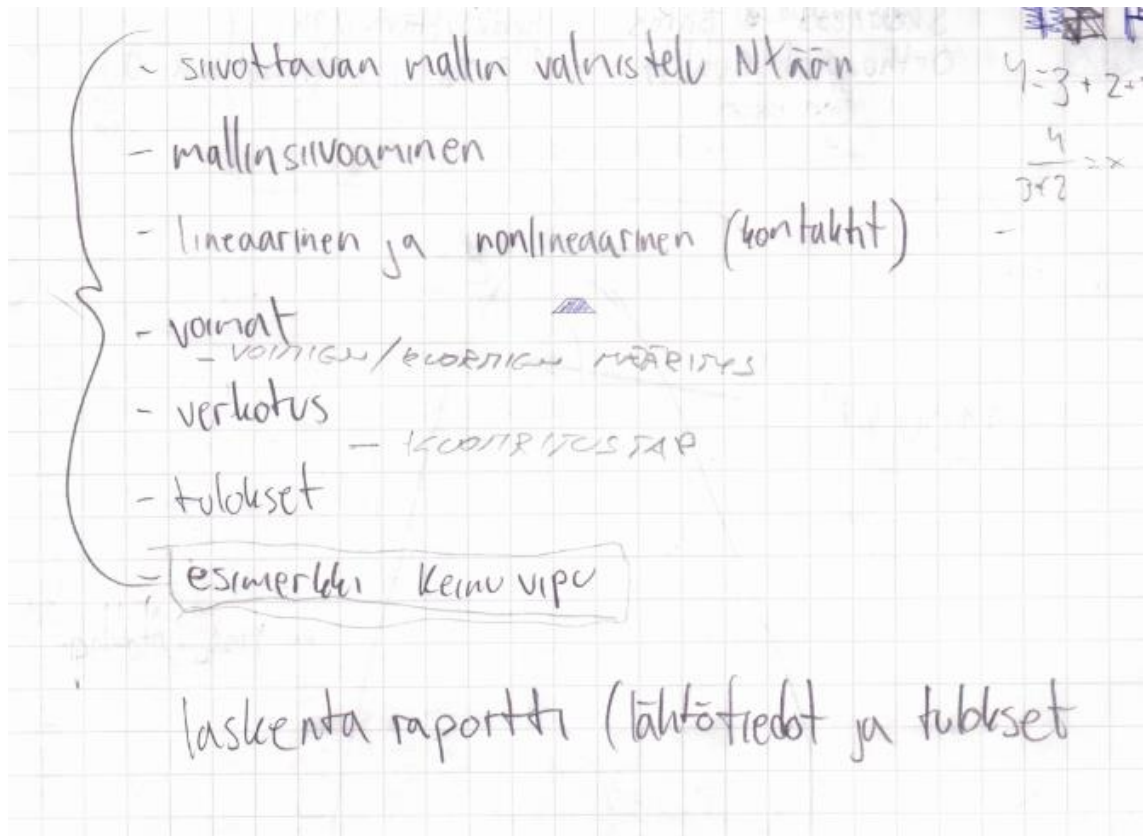 - siivottavan mallin valmistelu NXään
- mallin siivoaminen
- lineaarinen ja nonlineaarinen (kontaktit)
- voimat
- VOIMIEN/KUORMIEN MÄÄRITYS
- verkotus
- KUORMITUSTAP
- tulokset
- esimerkki keinuvipu
laskenta raportti (lähtötiedot ja tulokset
4=3+2+
4
3+2 =x